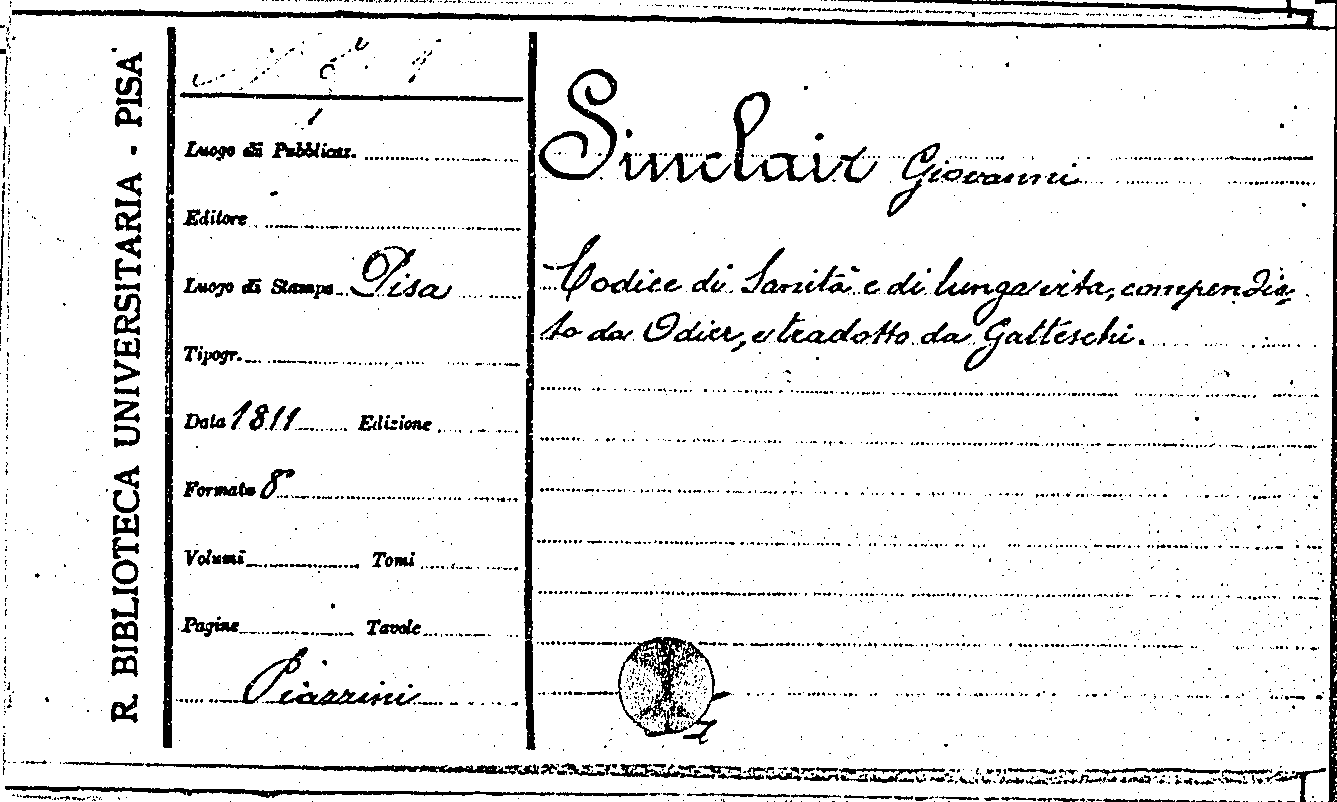 R. BIBLIOTECA UNIVERSITARIA - PISA
Luogo di Pubblicaz.
Editore
Luogo di Stampa Pisa
Tipogr.
Data 1811 Edizione
Formato 8°
Volumi Tomi
Pagine Tavole
Piazzini
Sinclair Giovanni
Codice di Sanità e di lunga vita, compendia-
to da Odier, e tradotto da Gatteschi.